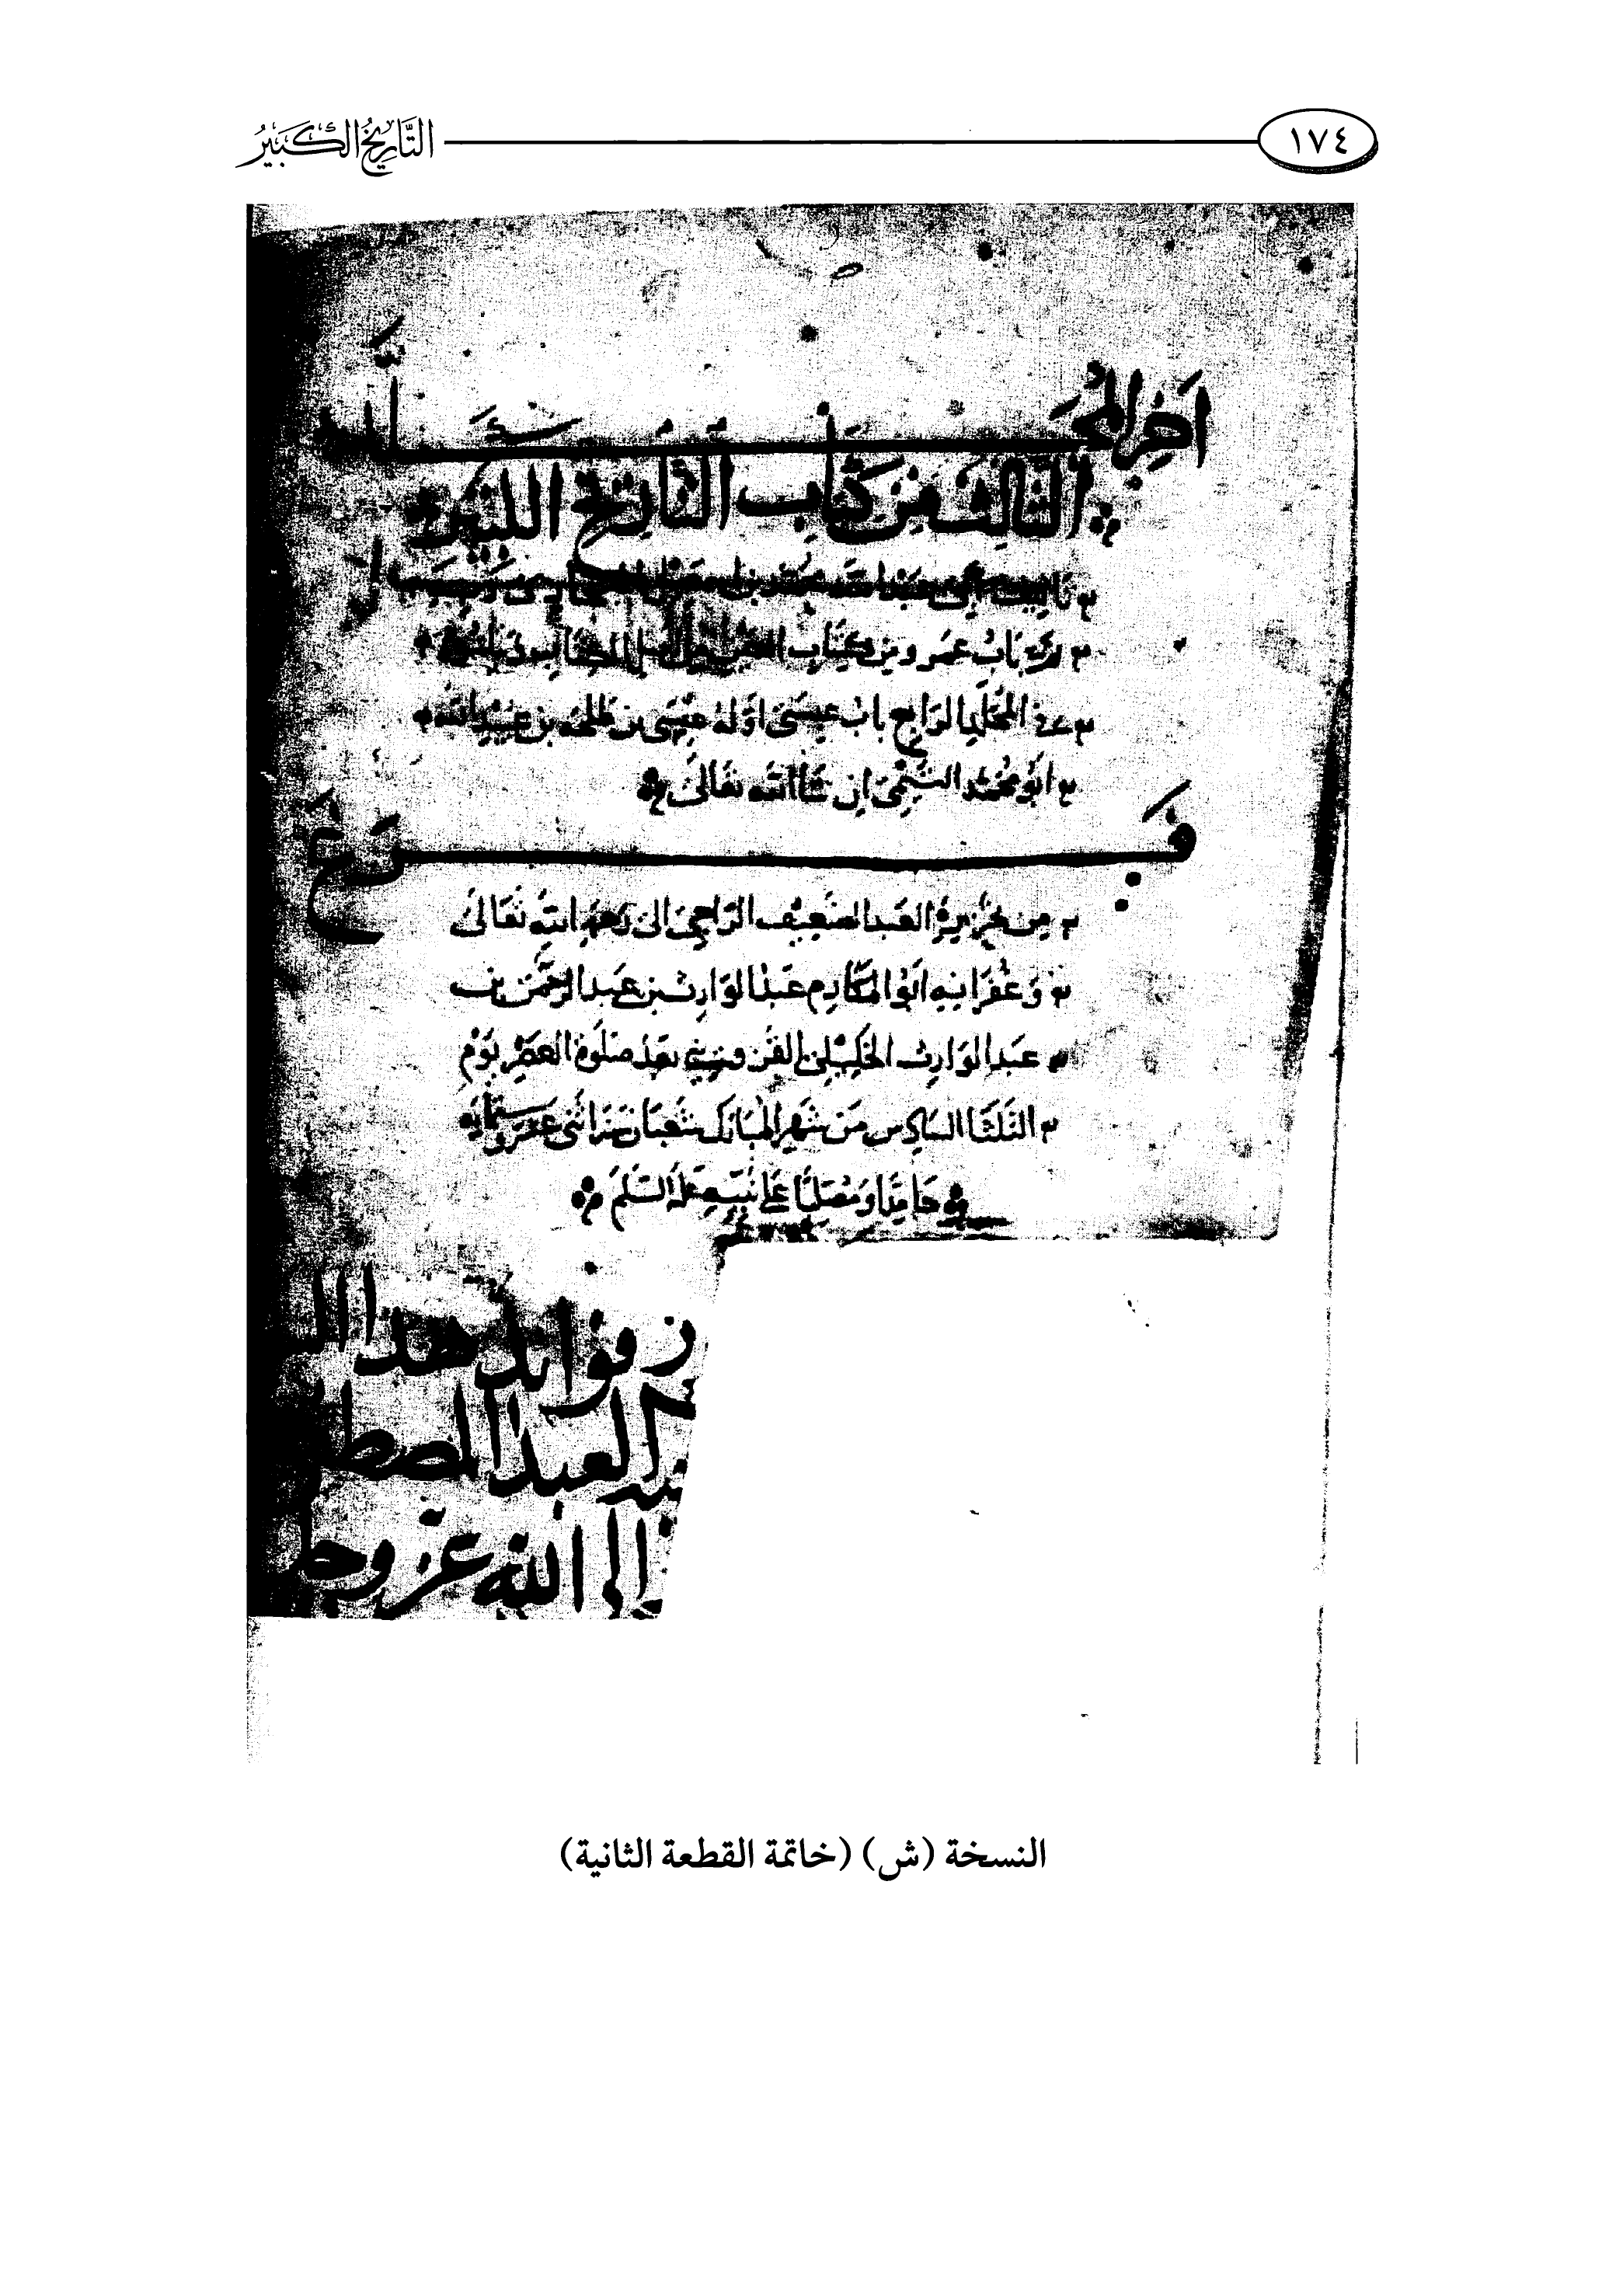 ١٧٤
التَّارِيخُ الكَبِيرُ
آخِرُ المُجَلَّد
الثَّالِثِ مِنْ كِتَابِ التَّارِيخِ الكَبِيرِ
تاليف ابي عبد الله محمد بن
باب عمرو من كتاب
المجلد الرابع باب عيسى اوله عيسى بن طلحة بن عبيد الله
ابو محمد التيمي ان شا الله تعالى
فرغ
من تحريره العبد الضعيف الراجي الى رحمة الله تعالى
وغفرانه ابي المكارم عبد الوارث بن عبد الرحمن بن
عبد الوارث الخليلي القزويني بعد صلوة العصر يوم
الثلثا السادس من شهر المبارك شعبان سنة اثنى عشر وستماية
حامدا ومصليا على نبيه عليه السلم
فوائد هذا
العبد
الى الله عز وجل
النسخة (ش) (خاتمة القطعة الثانية)